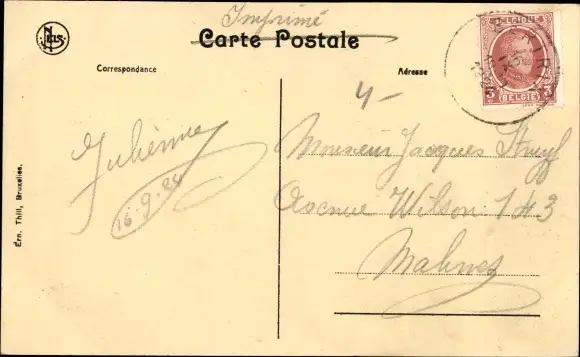 Imprimé
Nels
Carte Postale
Correspondance
Adresse
BELGIQUE
3 3
BELGIE
4-
Julienne
16.9.24
Monsieur Jacques Struyf
Avenue Wilson 143
Malines
Érn. Thill, Bruxelles.